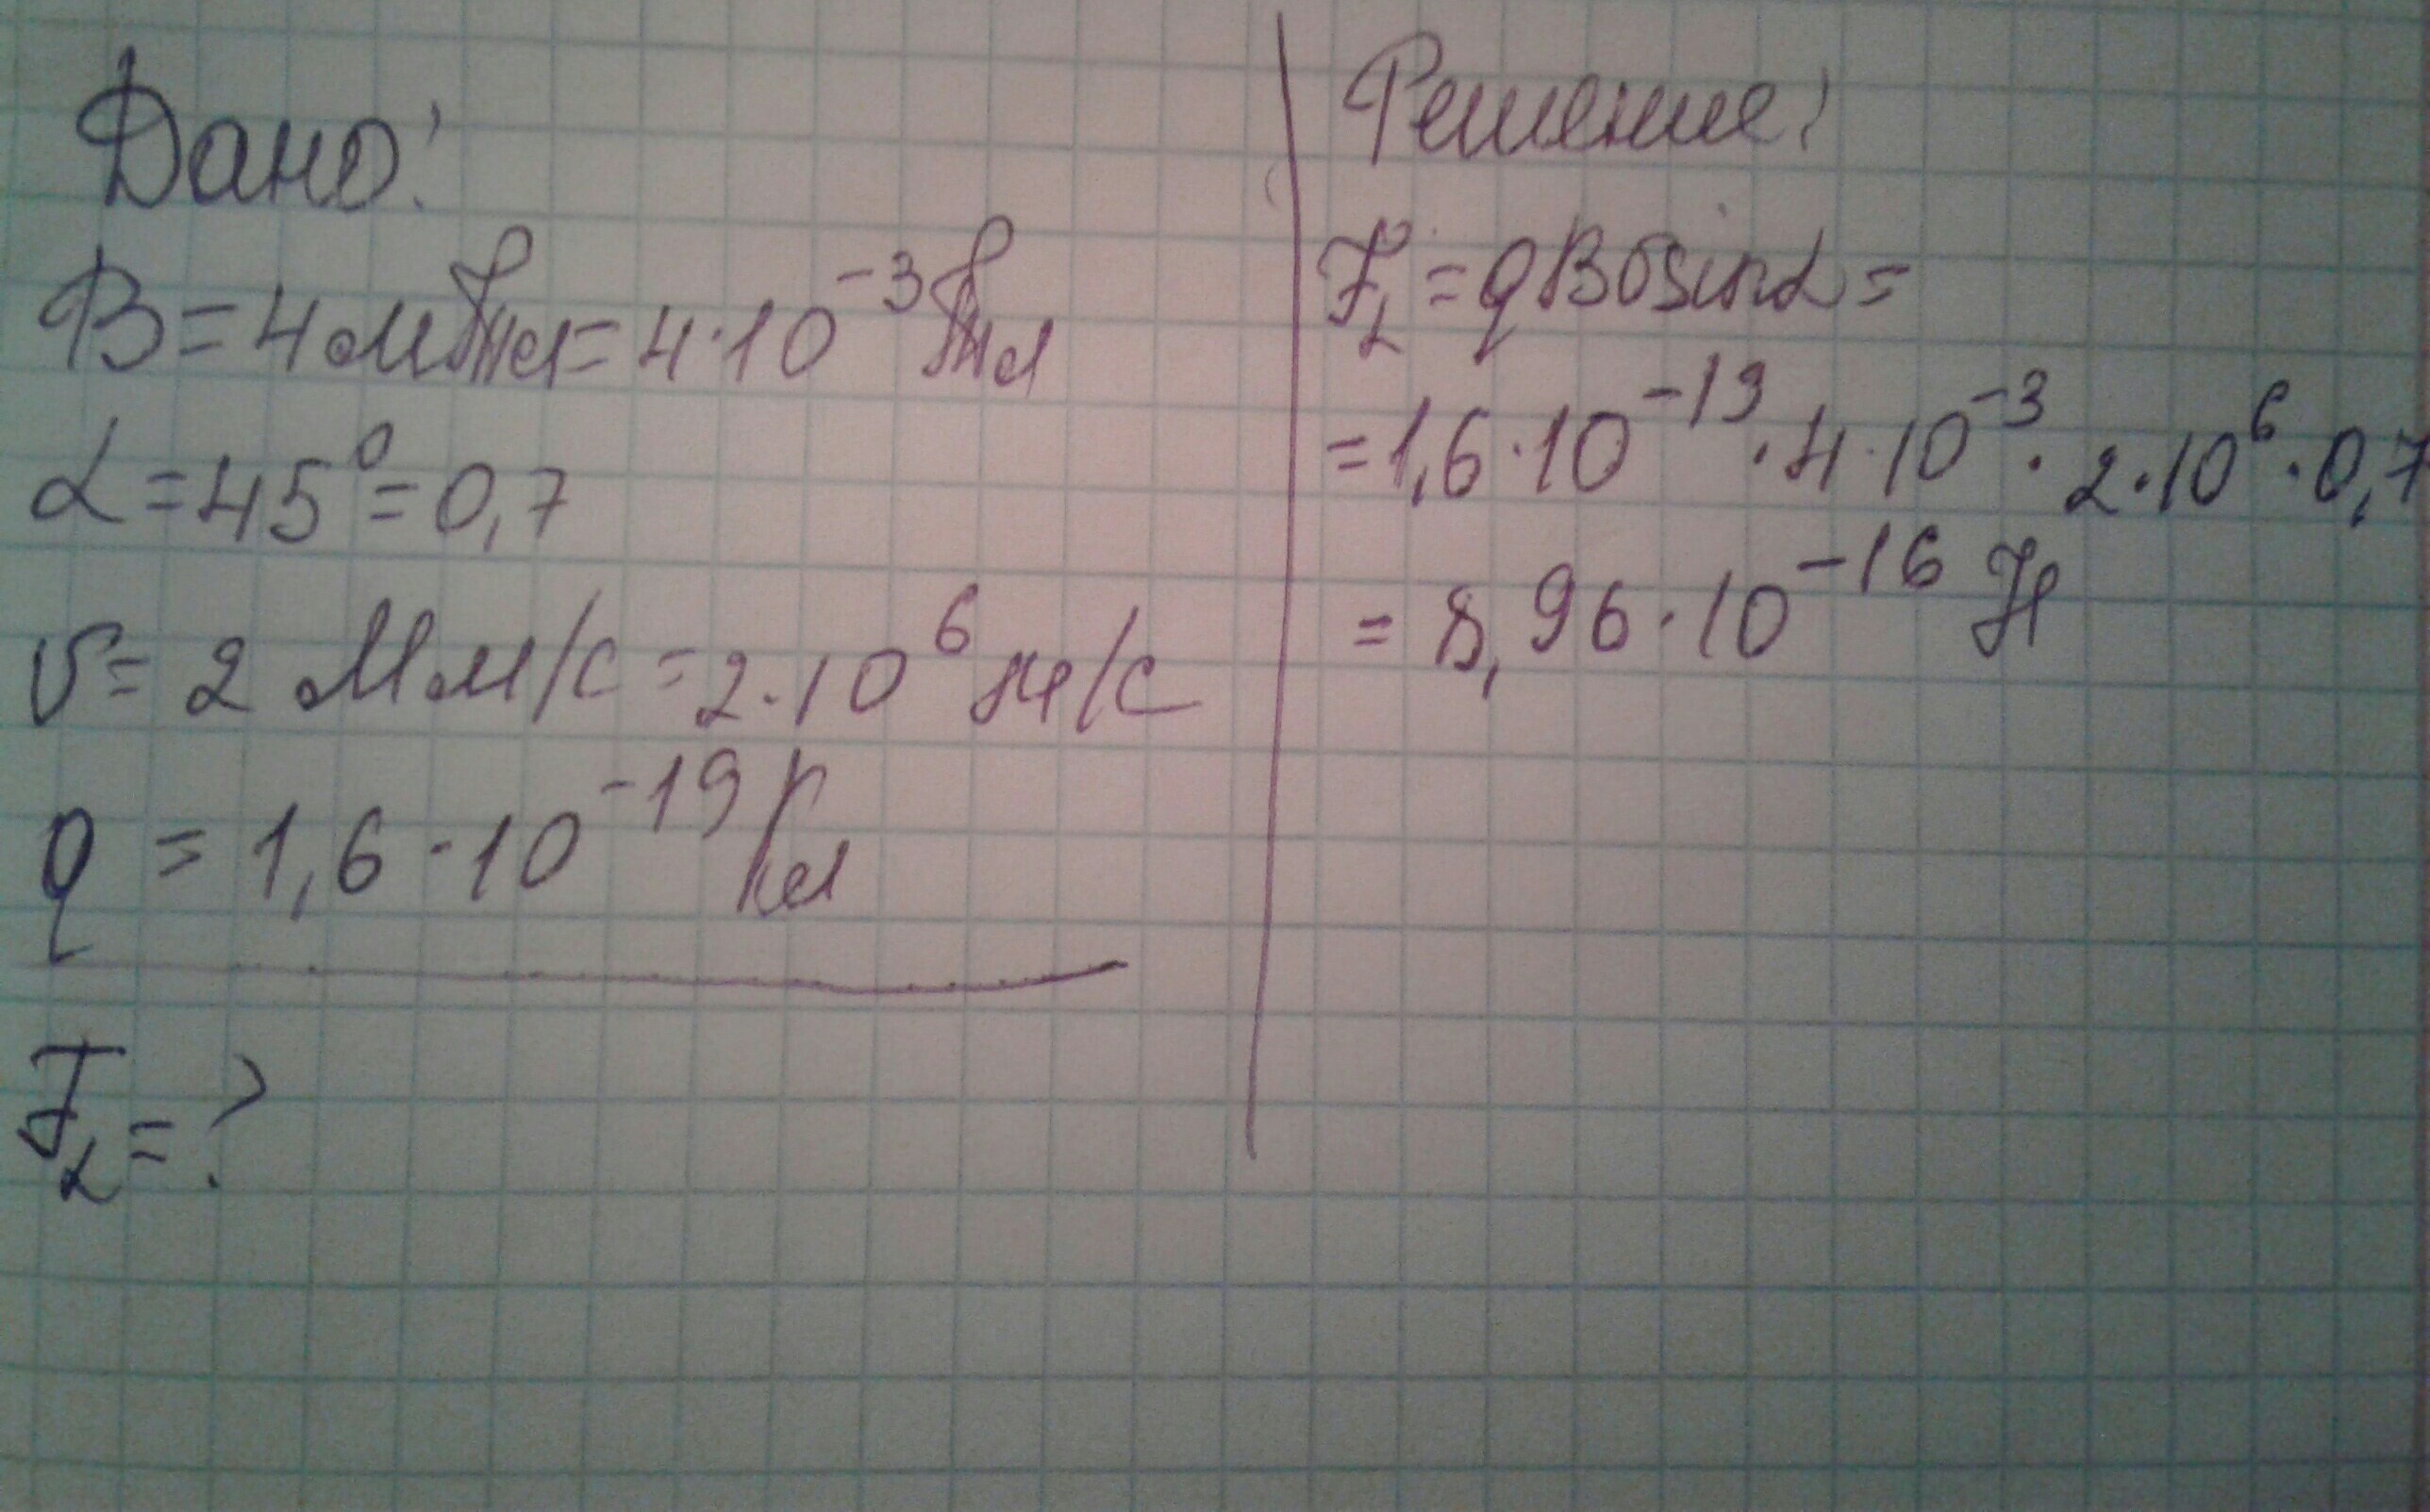 Дано:
B = 4 мТл = 4·10⁻³ Тл
α = 45° = 0,7
υ = 2 Мм/с = 2·10⁶ м/с
q = 1,6·10⁻¹⁹ Кл
F_L = ?
Решение:
F_L = qBυsinα =
= 1,6·10⁻¹⁹·4·10⁻³·2·10⁶·0,7
= 8,96·10⁻¹⁶ Н